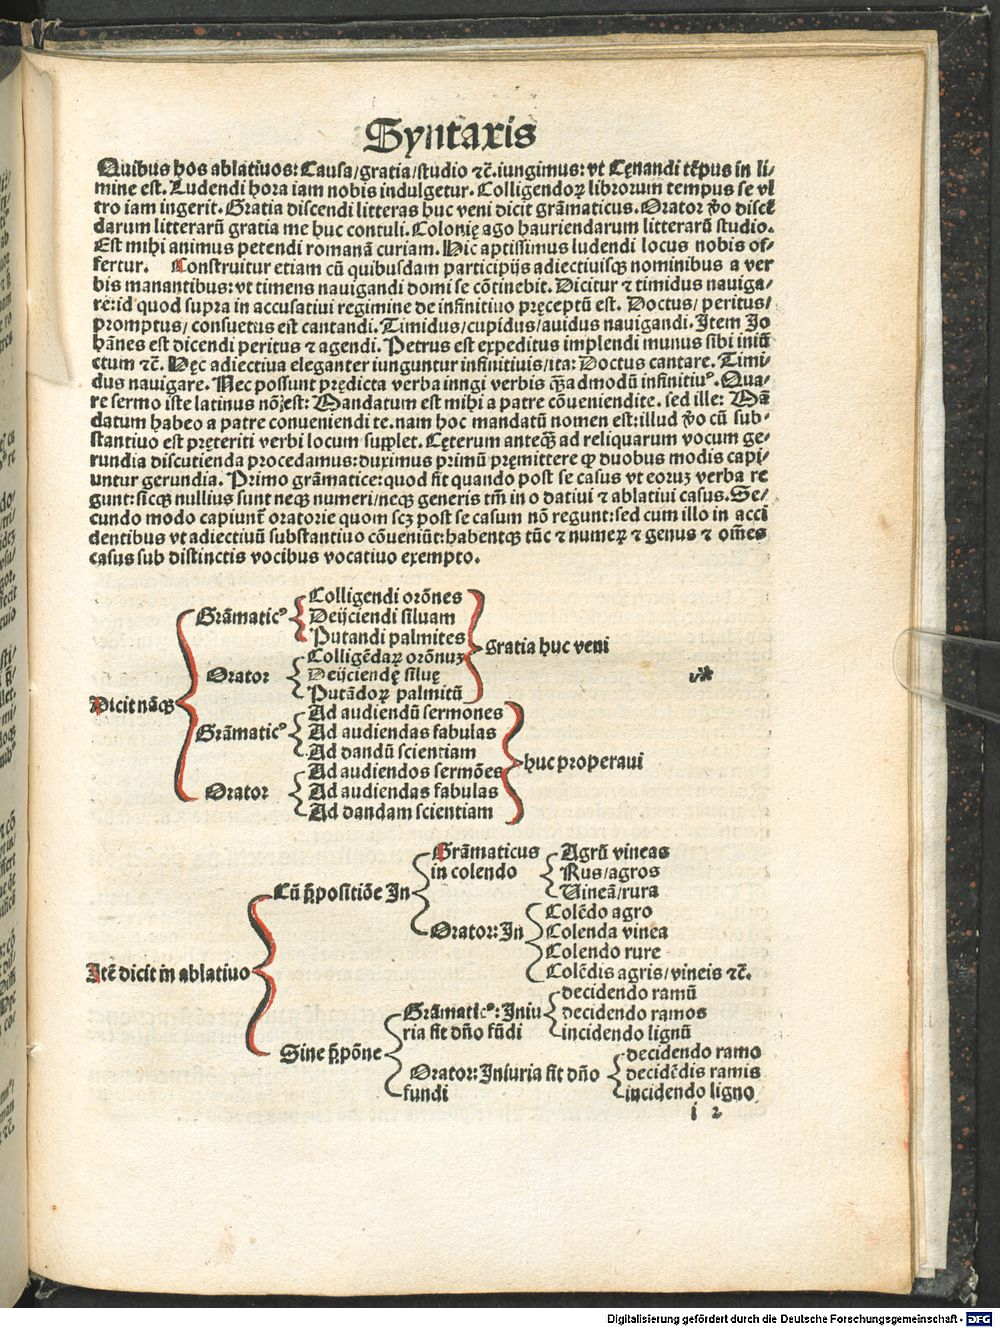 Syntaxis
Quibus hos ablatiuos: Causa/gratia/studio ⁊c̄. iungimus: vt Cęnandi tēpus in li⸗
mine est. Ludendi hora iam nobis indulgetur. Colligendoꝝ librorum tempus se vl
tro iam ingerit. Gratia discendi litteras huc veni dicit grāmaticus. Orator v̄o discē
darum litterarū gratia me huc contuli. Colonię ago hauriendarum litterarū studio.
Est mihi animus petendi romanā curiam. Hic aptissimus ludendi locus nobis of⸗
fertur. Construitur etiam cū quibusdam participijs adiectiuisqꝫ nominibus a ver
bis manantibus: vt timens nauigandi domi se cōtinebit. Dicitur ⁊ timidus nauiga⸗
re: id quod supra in accusatiui regimine de infinitiuo pręceptū est. Doctus/ peritus/
promptus/ consuetus est cantandi. Timidus/cupidus/auidus nauigandi. Item Jo
hānes est dicendi peritus ⁊ agendi. Petrus est expeditus implendi munus sibi iniū
ctum ⁊c̄. Hęc adiectiua eleganter iunguntur infinitiuis/ita: Doctus cantare. Timi⸗
dus nauigare. Nec possunt prędicta verba inngi verbis qꝫadmodū infinitiuꝰ. Qua⸗
re sermo iste latinus nō est: Mandatum est mihi a patre cōueniendite. sed ille: Mā
datum habeo a patre conueniendi te. nam hoc mandatū nomen est: illud v̄o cū sub⸗
stantiuo est pręteriti verbi locum supplet. Cęterum anteqꝫ ad reliquarum vocum ge⸗
rundia discutienda procedamus: duximus primū pręmittere ꝙ duobus modis capi⸗
untur gerundia. Primo grāmatice: quod fit quando post se casus vt eoruꝫ verba re
gunt: sicqꝫ nullius sunt neqꝫ numeri/neqꝫ generis tm̄ in o datiui ⁊ ablatiui casus. Se⸗
cundo modo capiunt̄ oratorie quom scꝫ post se casum nō regunt: sed cum illo in acci
dentibus vt adiectiuū substantiuo cōueniūt: habentqꝫ tūc ⁊ numeꝝ ⁊ genus ⁊ om̄es
casus sub distinctis vocibus vocatiuo exempto.
Dicit nāqꝫ
Grāmaticꝰ
Colligendi orōnes
Deijciendi siluam
Putandi palmites
Orator
Colligēdaꝝ orōnuꝫ
Deijciendę siluę
Putādoꝝ palmitū
gratia huc veni
Grāmaticꝰ
Ad audiendū sermones
Ad audiendas fabulas
Ad dandū scientiam
Orator
Ad audiendos sermōes
Ad audiendas fabulas
Ad dandam scientiam
huc properaui
Itē dicit in ablatiuo
Cū p̄positiōe In
Grāmaticus
in colendo
Agrū vineas
Rus/agros
Vineā/rura
Orator: In
Colēdo agro
Colenda vinea
Colendo rure
Colēdis agris/vineis ⁊c̄.
Sine p̄pōne
Grāmaticꝰ: Iniu
ria fit dn̄o fūdi
decidendo ramū
decidendo ramos
incidendo lignū
Orator: Iniuria fit dn̄o
fundi
decidendo ramo
decidēdis ramis
incidendo ligno
i 2
Digitalisierung gefördert durch die Deutsche Forschungsgemeinschaft - DFG